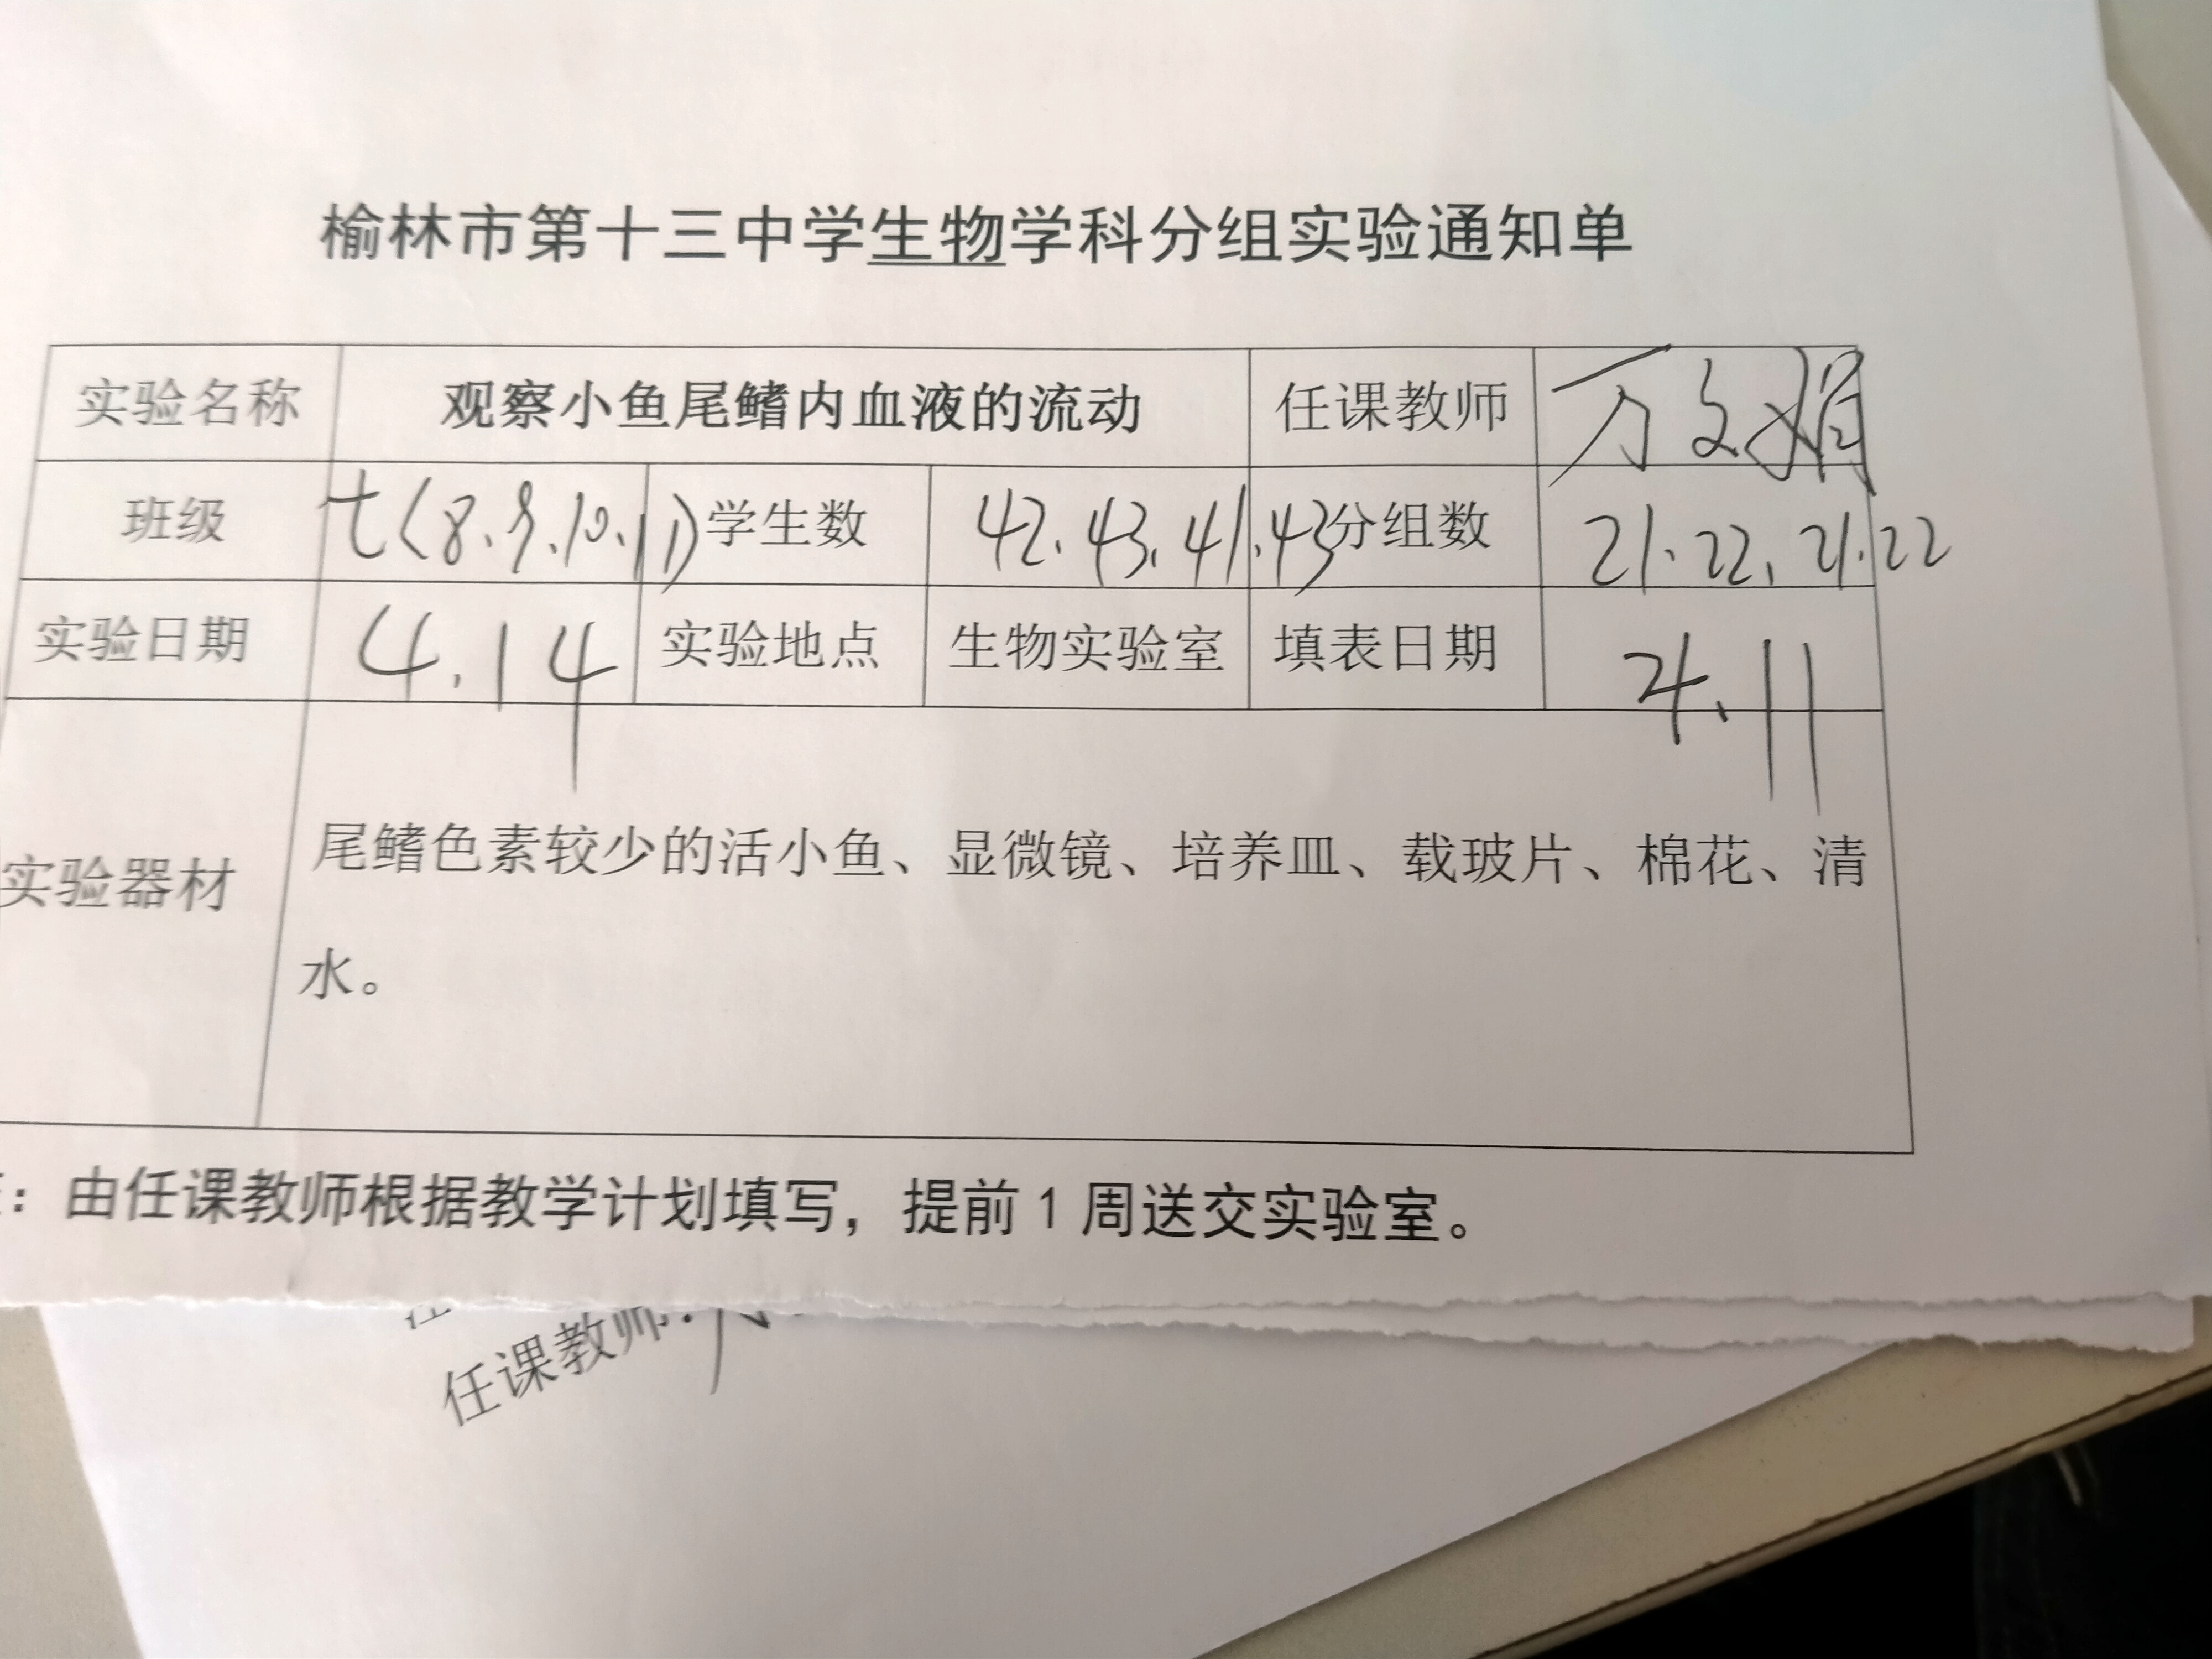 榆林市第十三中学生物学科分组实验通知单
实验名称 观察小鱼尾鳍内血液的流动 任课教师 万文娟
班级 七(8.9.10.11) 学生数 42.43.41.43 分组数 21.22.21.22
实验日期 4.14 实验地点 生物实验室 填表日期 4.11
实验器材 尾鳍色素较少的活小鱼、显微镜、培养皿、载玻片、棉花、清
水。
：由任课教师根据教学计划填写，提前1周送交实验室。
任课教师：